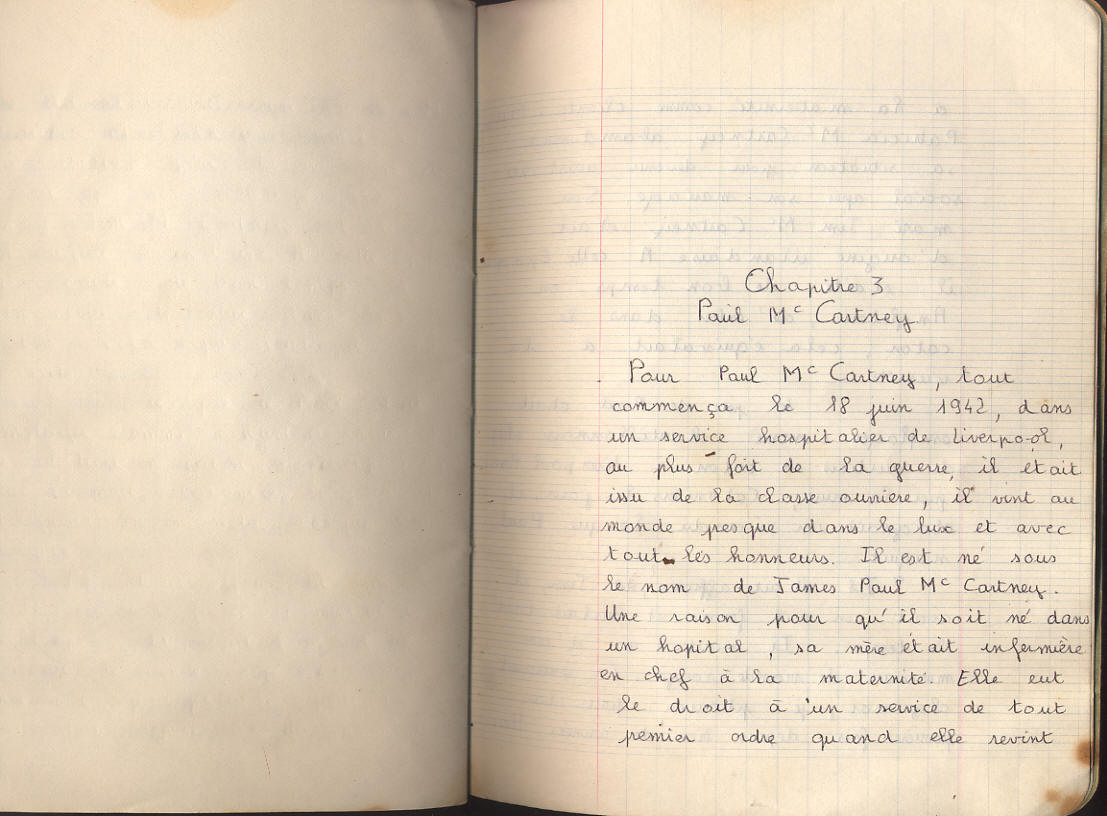 Chapitre 3
Paul Mc Cartney
Pour Paul Mc Cartney, tout
commença le 18 juin 1942, dans
un service hospitalier de Liverpool,
au plus fort de la guerre, il était
issu de la classe ouvriere, il vint au
monde presque dans le lux et avec
tout les honneurs. Il est né sous
le nom de James Paul Mc Cartney.
Une raison pour qu'il soit né dans
un hopital, sa mère était infermière
en chef à la maternité Elle eut
le droit à un service de tout
premier ordre quand elle revint